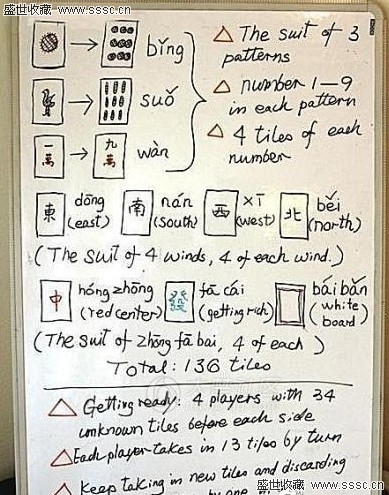 盛世收藏 www.sssc.cn
盛世收藏 www.sssc.cn
bǐng
suǒ
一萬 九萬 wàn
△ The suit of 3
patterns
△ number 1—9
in each pattern
△ 4 tiles of each
number
東 dōng (east) 南 nán (south) 西 xī (west) 北 běi (north)
(The suit of 4 winds, 4 of each wind.)
中 hóng zhōng (red center) 發 fā cái (getting rich) bái bǎn (white board)
(The suit of zhōng fā bai, 4 of each)
Total: 136 tiles
△ Getting ready: 4 players with 34
unknown tiles before each side
△ Each player takes in 13 tiles by turn
△ Keep taking in new tiles and discarding
by one
盛世收藏 www.sssc.cn